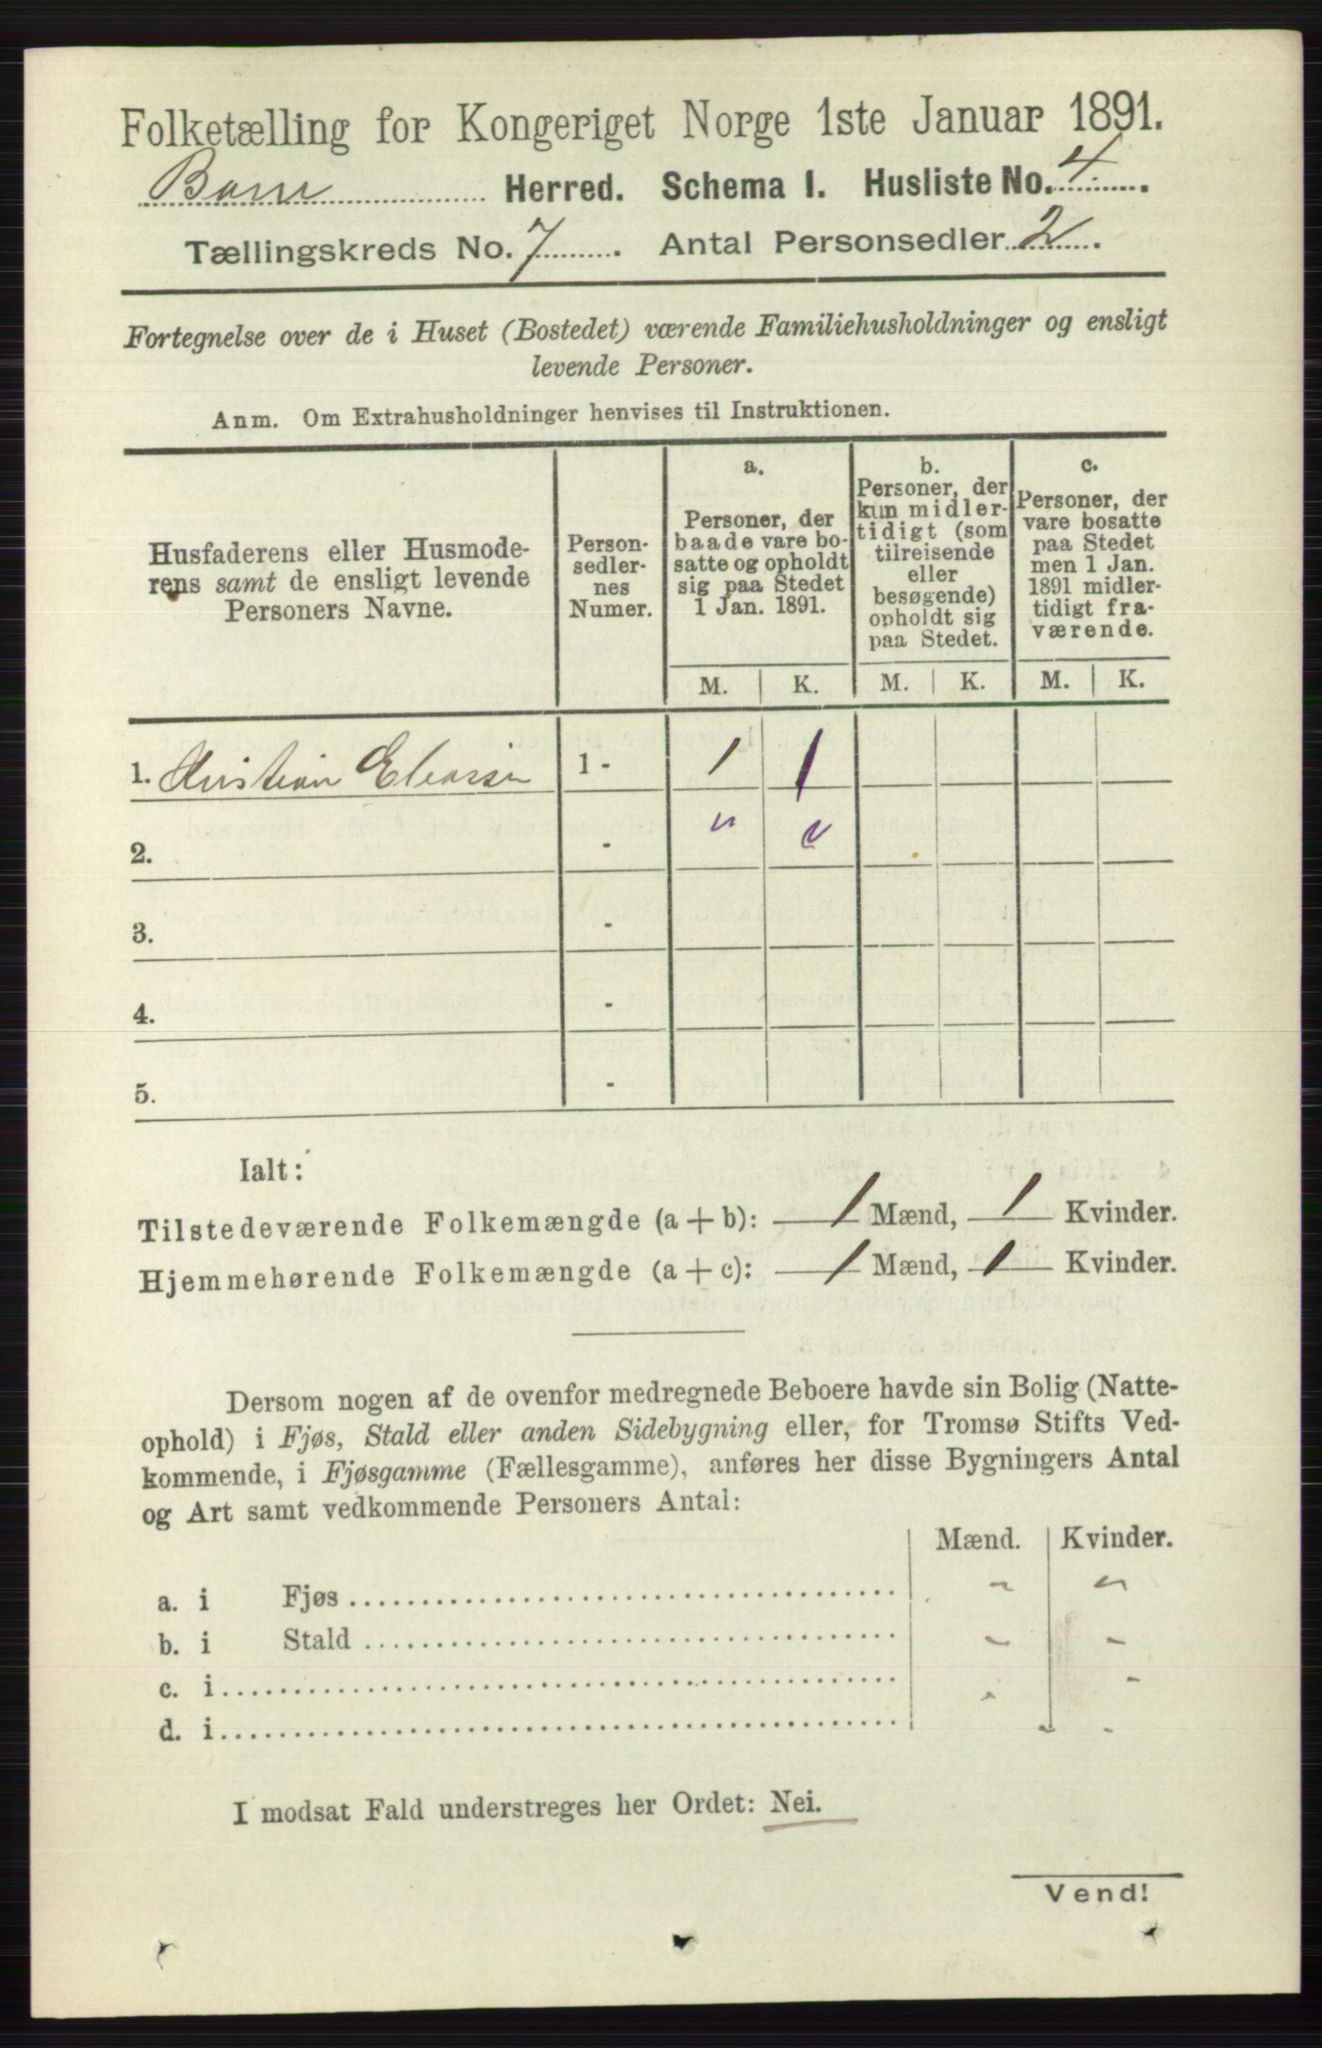 Folketælling for Kongeriget Norge 1ste Januar 1891.
Herred. Schema I. Husliste No. 4
Tællingskreds No. 7. Antal Personsedler 2.
Fortegnelse over de i Huset (Bostedet) værende Familiehusholdninger og ensligt
levende Personer.
Anm. Om Extrahusholdninger henvises til Instruktionen.
Husfaderens eller Husmode-
rens samt de ensligt levende
Personers Navne.
Person-
sedler-
nes
Numer.
a.
Personer, der
baade vare bo-
satte og opholdt
sig paa Stedet
1 Jan. 1891.
b.
Personer, der
kun midler-
tidigt (som
tilreisende
eller
besøgende)
opholdt sig
paa Stedet.
c.
Personer, der
vare bosatte
paa Stedet
men 1 Jan.
1891 midler-
tidigt fra-
værende.
M. K. M. K. M. K.
1. Kristian 1 - 1 1
2. - " "
3. -
4. -
5. -
Ialt:
Tilstedeværende Folkemængde (a + b): 1 Mænd, 1 Kvinder.
Hjemmehørende Folkemængde (a + c): 1 Mænd, 1 Kvinder.
Dersom nogen af de ovenfor medregnede Beboere havde sin Bolig (Natte-
ophold) i Fjøs, Stald eller anden Sidebygning eller, for Tromsø Stifts Ved-
kommende, i Fjøsgamme (Fællesgamme), anføres her disse Bygningers Antal
og Art samt vedkommende Personers Antal:
Mænd. Kvinder.
a. i Fjøs - "
b. i Stald - -
c. i - -
d. i - -
I modsat Fald understreges her Ordet: Nei.
Vend!